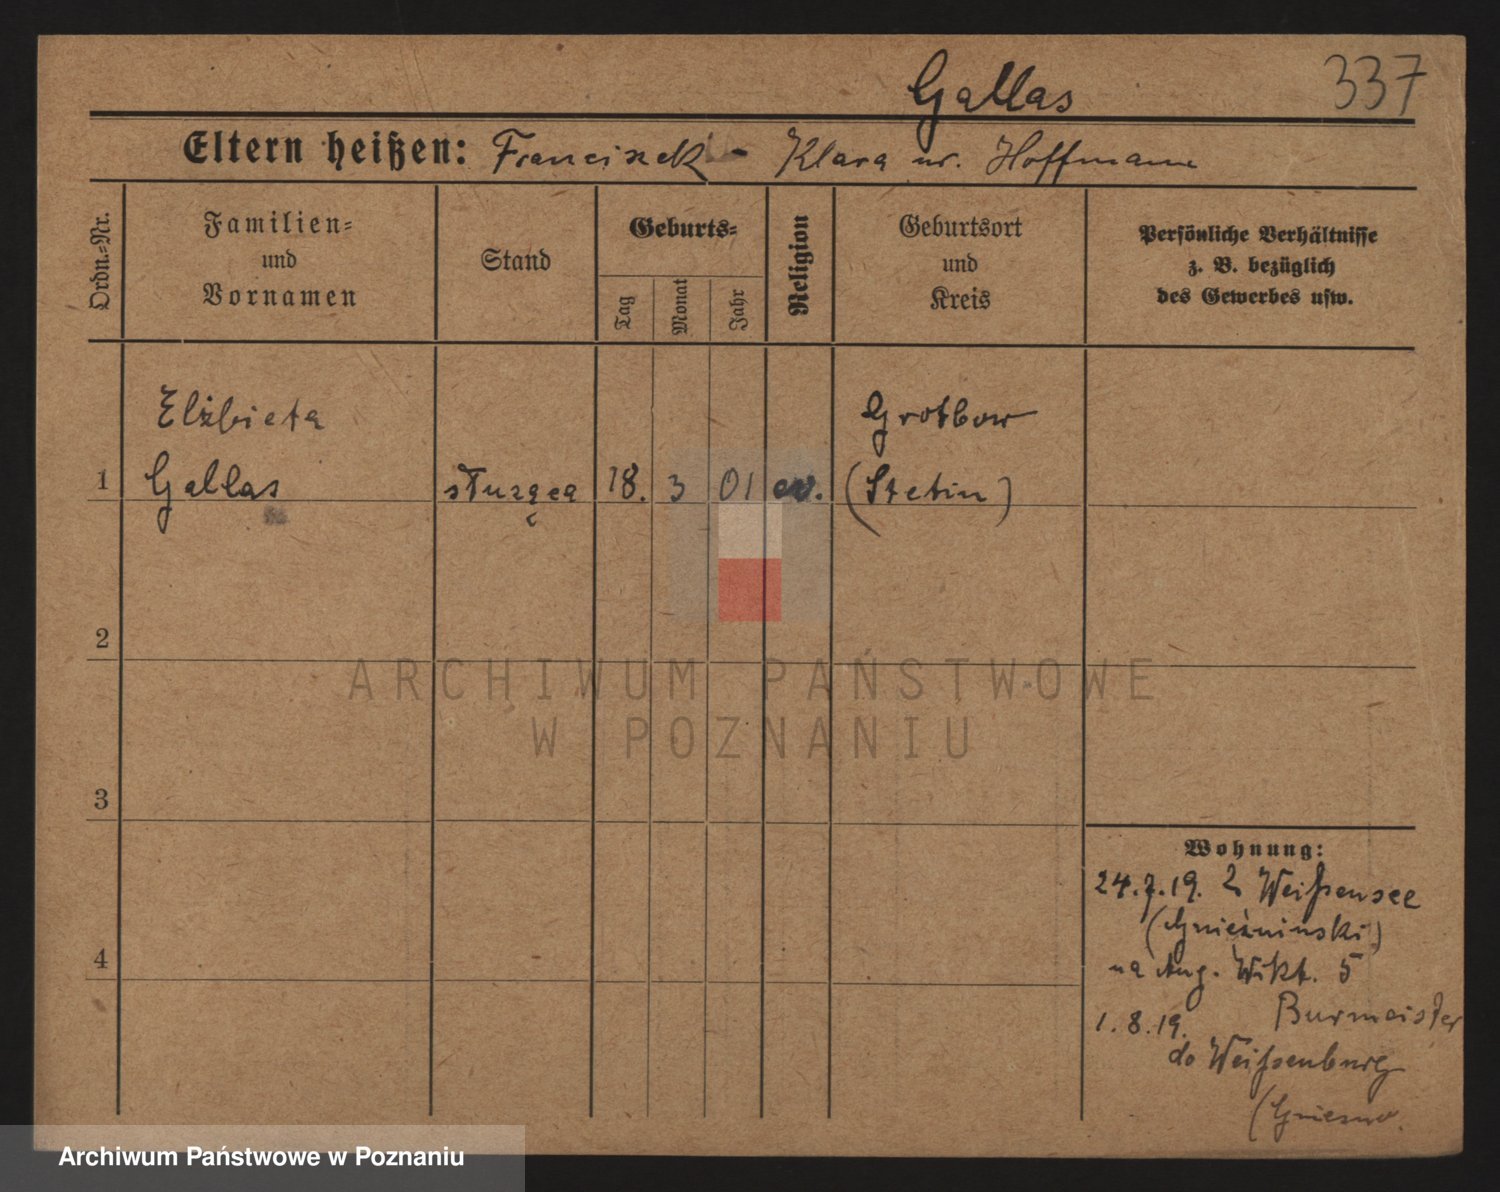 Gallas 337
Eltern heißen: Franciszek - Klara ur. Hoffmann
Ordn.-Nr.
Familien-
und
Vornamen
Stand
Geburts-
Tag
Monat
Jahr
Religion
Geburtsort
und
Kreis
Persönliche Verhältnisse
z. B. bezüglich
des Gewerbes usw.
Elżbieta Grotbow
1 Gallas służąca 18. 3 01 ew. (Stetin)
2
3
4
Wohnung:
24.7.19. z Weißensee
(Gnieźninski)
na Aug. Wikt. 5
Burmeister
1.8.19.
do Weißenburg
(Gniezno.
ARCHIWUM PAŃSTWOWE
W POZNANIU
Archiwum Państwowe w Poznaniu